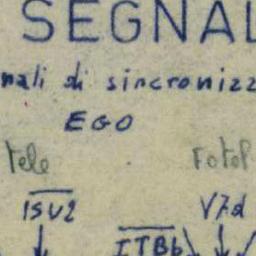 SEGNAL
nali di sincronizz
EGO
tele Fotof
ISV2 V7d
ITBb